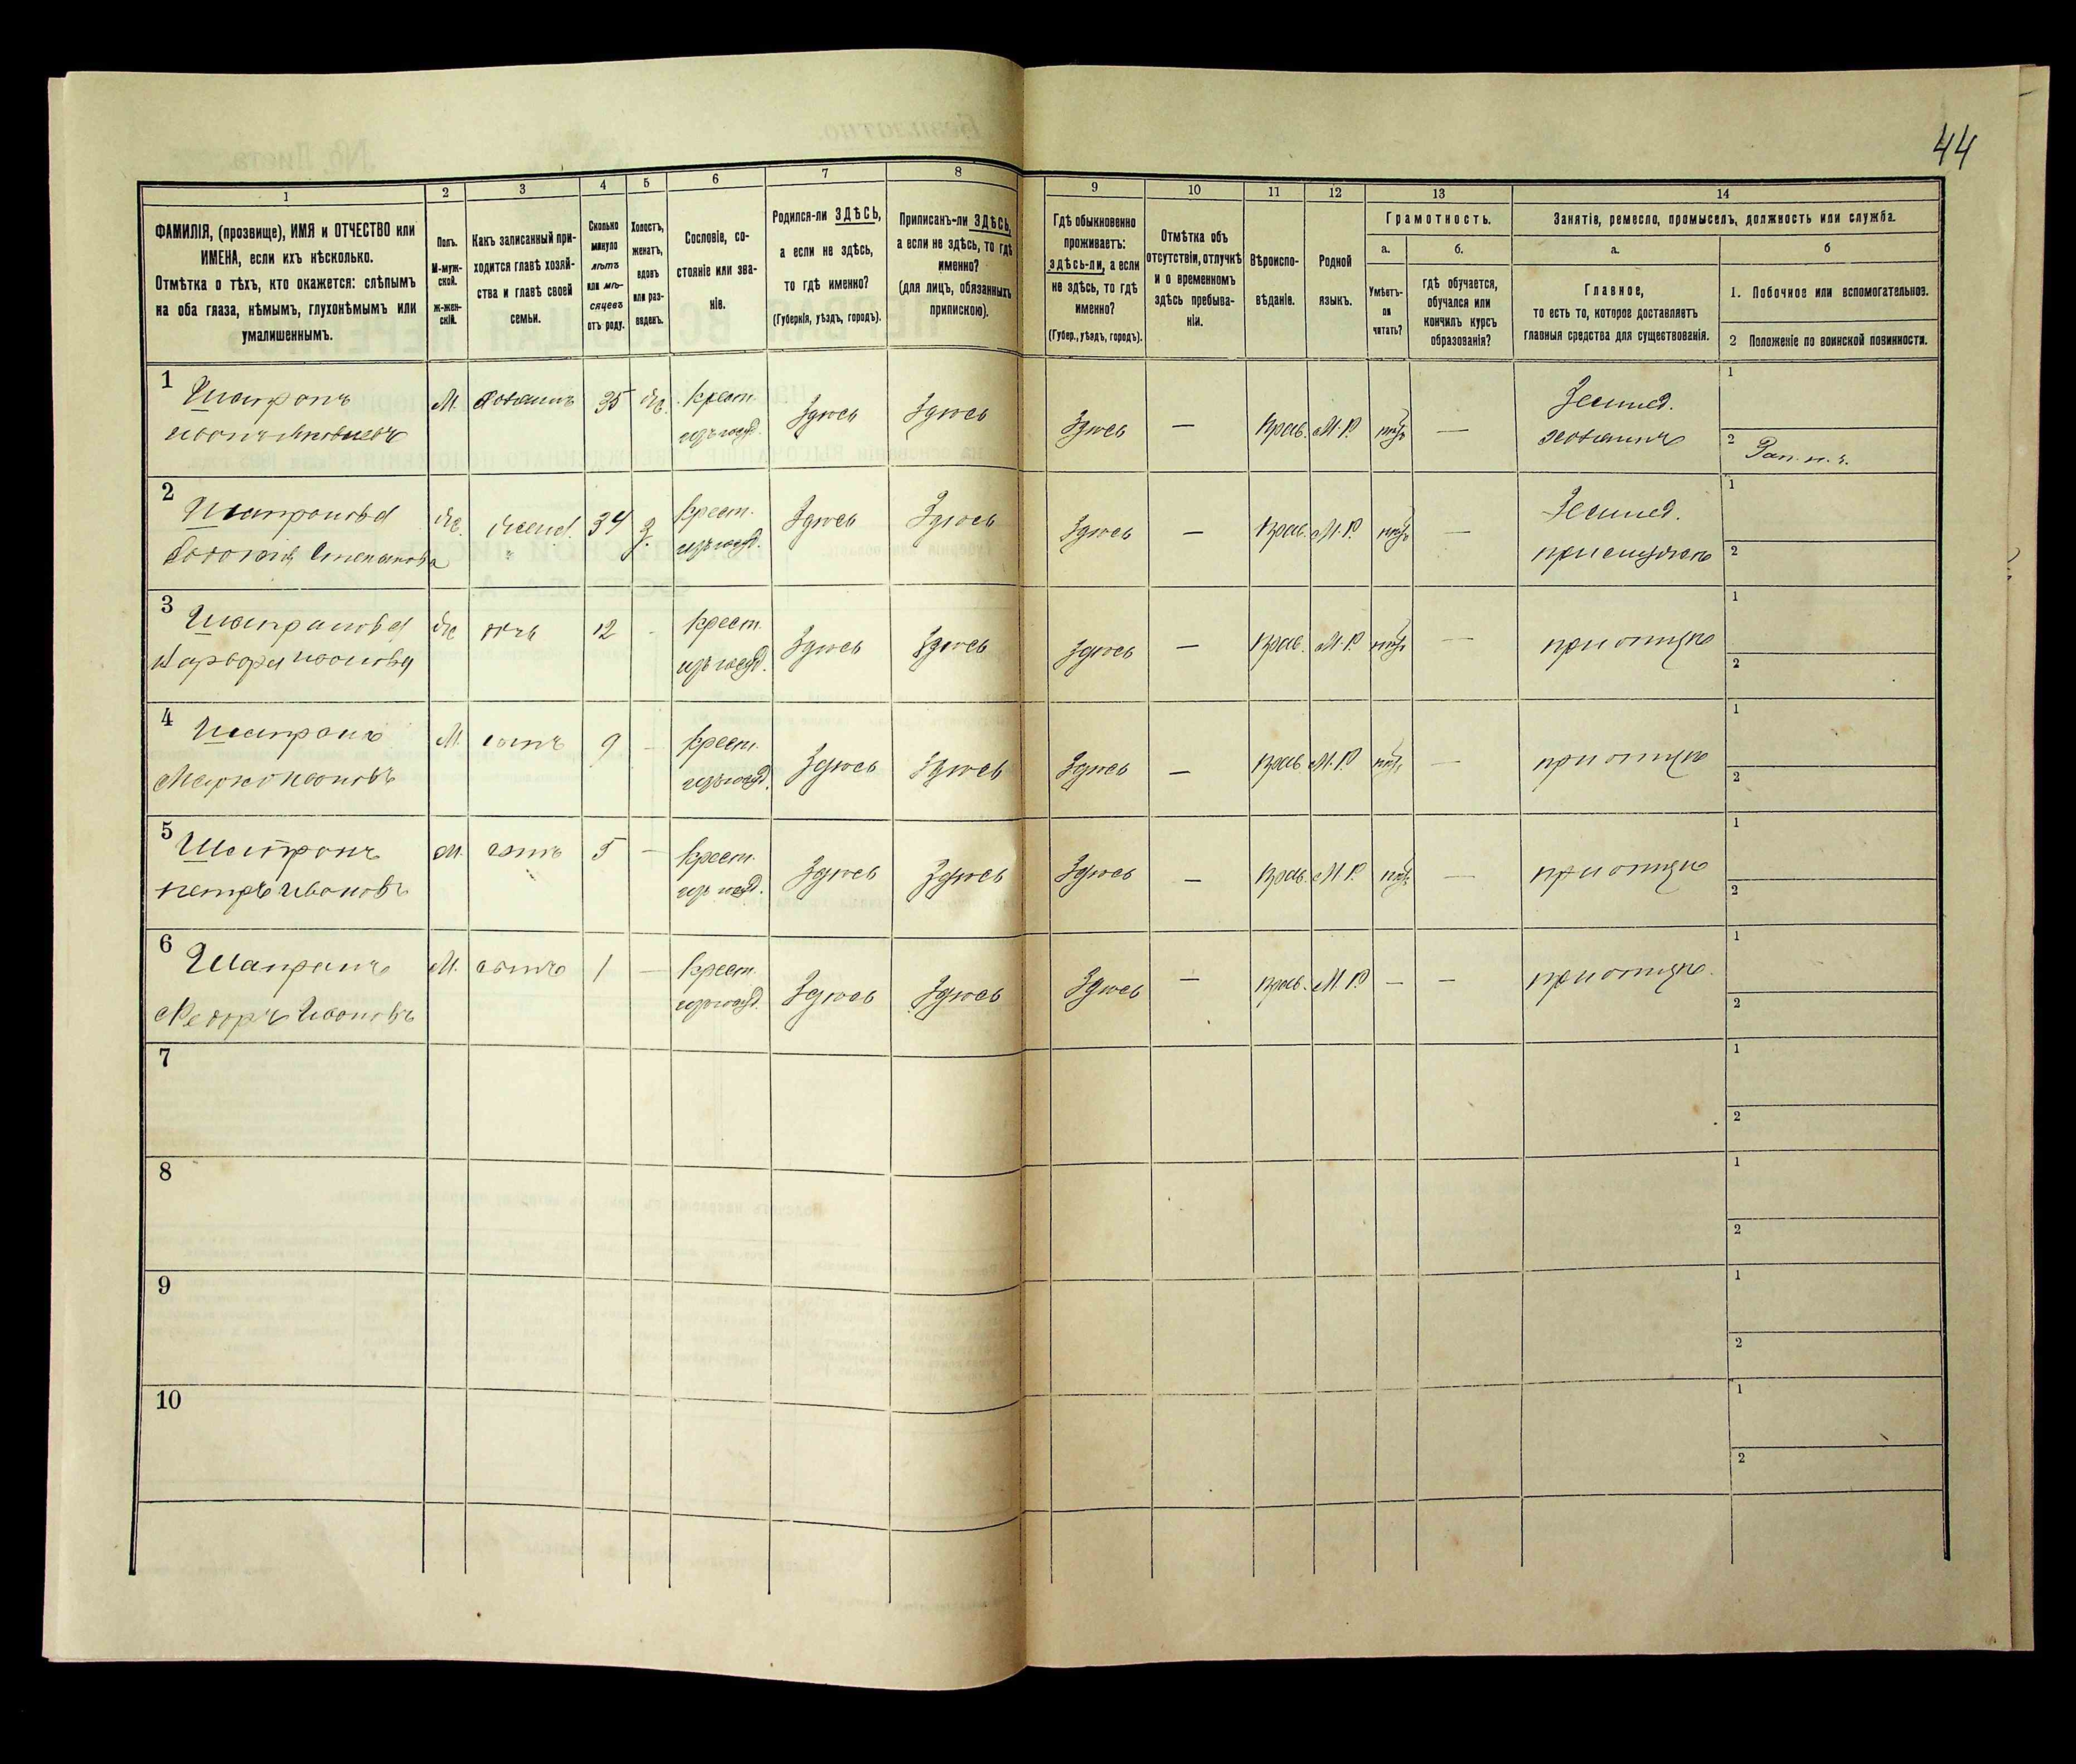 44
1
2
3
4
5
6
7
8
9
10
11
12
13
14
ФАМИЛІЯ, (прозвище), ИМЯ и ОТЧЕСТВО или
ИМЕНА, если ихъ нѣсколько.
Отмѣтка о тѣхъ, кто окажется: слѣпымъ
на оба глаза, нѣмымъ, глухонѣмымъ или
умалишеннымъ.
Полъ.
М-муж-
ской.
ж-жен-
скій.
Какъ записанный при-
ходится главѣ хозяй-
ства и главѣ своей
семьи.
Сколько
минуло
лѣтъ
или мѣ-
сяцевъ
отъ роду.
Холостъ,
женатъ,
вдовъ
или раз-
веденъ.
Сословіе, со-
стояніе или зва-
ніе.
Родился-ли ЗДѢСЬ,
а если не здѣсь,
то гдѣ именно?
(Губернія, уѣздъ, городъ).
Приписанъ-ли ЗДѢСЬ,
а если не здѣсь, то гдѣ
именно?
(для лицъ, обязанныхъ
припискою).
Гдѣ обыкновенно
проживаетъ:
здѣсь-ли, а если
не здѣсь, то гдѣ
именно?
(Губер., уѣздъ, городъ).
Отмѣтка объ
отсутствіи, отлучкѣ
и о временномъ
здѣсь пребыва-
ніи.
Вѣроиспо-
вѣданіе.
Родной
языкъ.
Грамотность.
а.
Умѣетъ-
ли
читать?
б.
гдѣ обучается,
обучался или
кончилъ курсъ
образованія?
Занятіе, ремесло, промыселъ, должность или служба.
а.
Главное,
то есть то, которое доставляетъ
главныя средства для существованія.
б
1. Побочное или вспомогательное.
2 Положеніе по воинской повинности.
1
Шапранъ
М.
35
Крест.
Здѣсь
Здѣсь
Здѣсь
—
Прав.
М.Р.
—
Землед.
хозяинъ
1
2
2
Степанова
34
Крест.
Здѣсь
Здѣсь
Здѣсь
—
Прав.
М.Р.
—
Землед.
1
2
3
Варвара Иванова
дочь
12
-
Крест.
Здѣсь
Здѣсь
Здѣсь
—
Прав.
М.Р.
—
при отцѣ
1
2
4
Шапранъ
Марко Ивановъ
М.
сынъ
9
-
Крест.
Здѣсь
Здѣсь
Здѣсь
—
Прав.
М.Р.
—
при отцѣ
1
2
5
Шапранъ
Петръ Ивановъ
М.
сынъ
5
—
Крест.
Здѣсь
Здѣсь
Здѣсь
—
Прав.
М.Р.
—
при отцѣ
1
2
6
Шапранъ
Ѳедоръ Ивановъ
М.
сынъ
1
—
Крест.
Здѣсь
Здѣсь
Здѣсь
—
Прав.
М.Р.
—
—
при отцѣ.
1
2
7
1
2
8
1
2
9
1
2
10
1
2